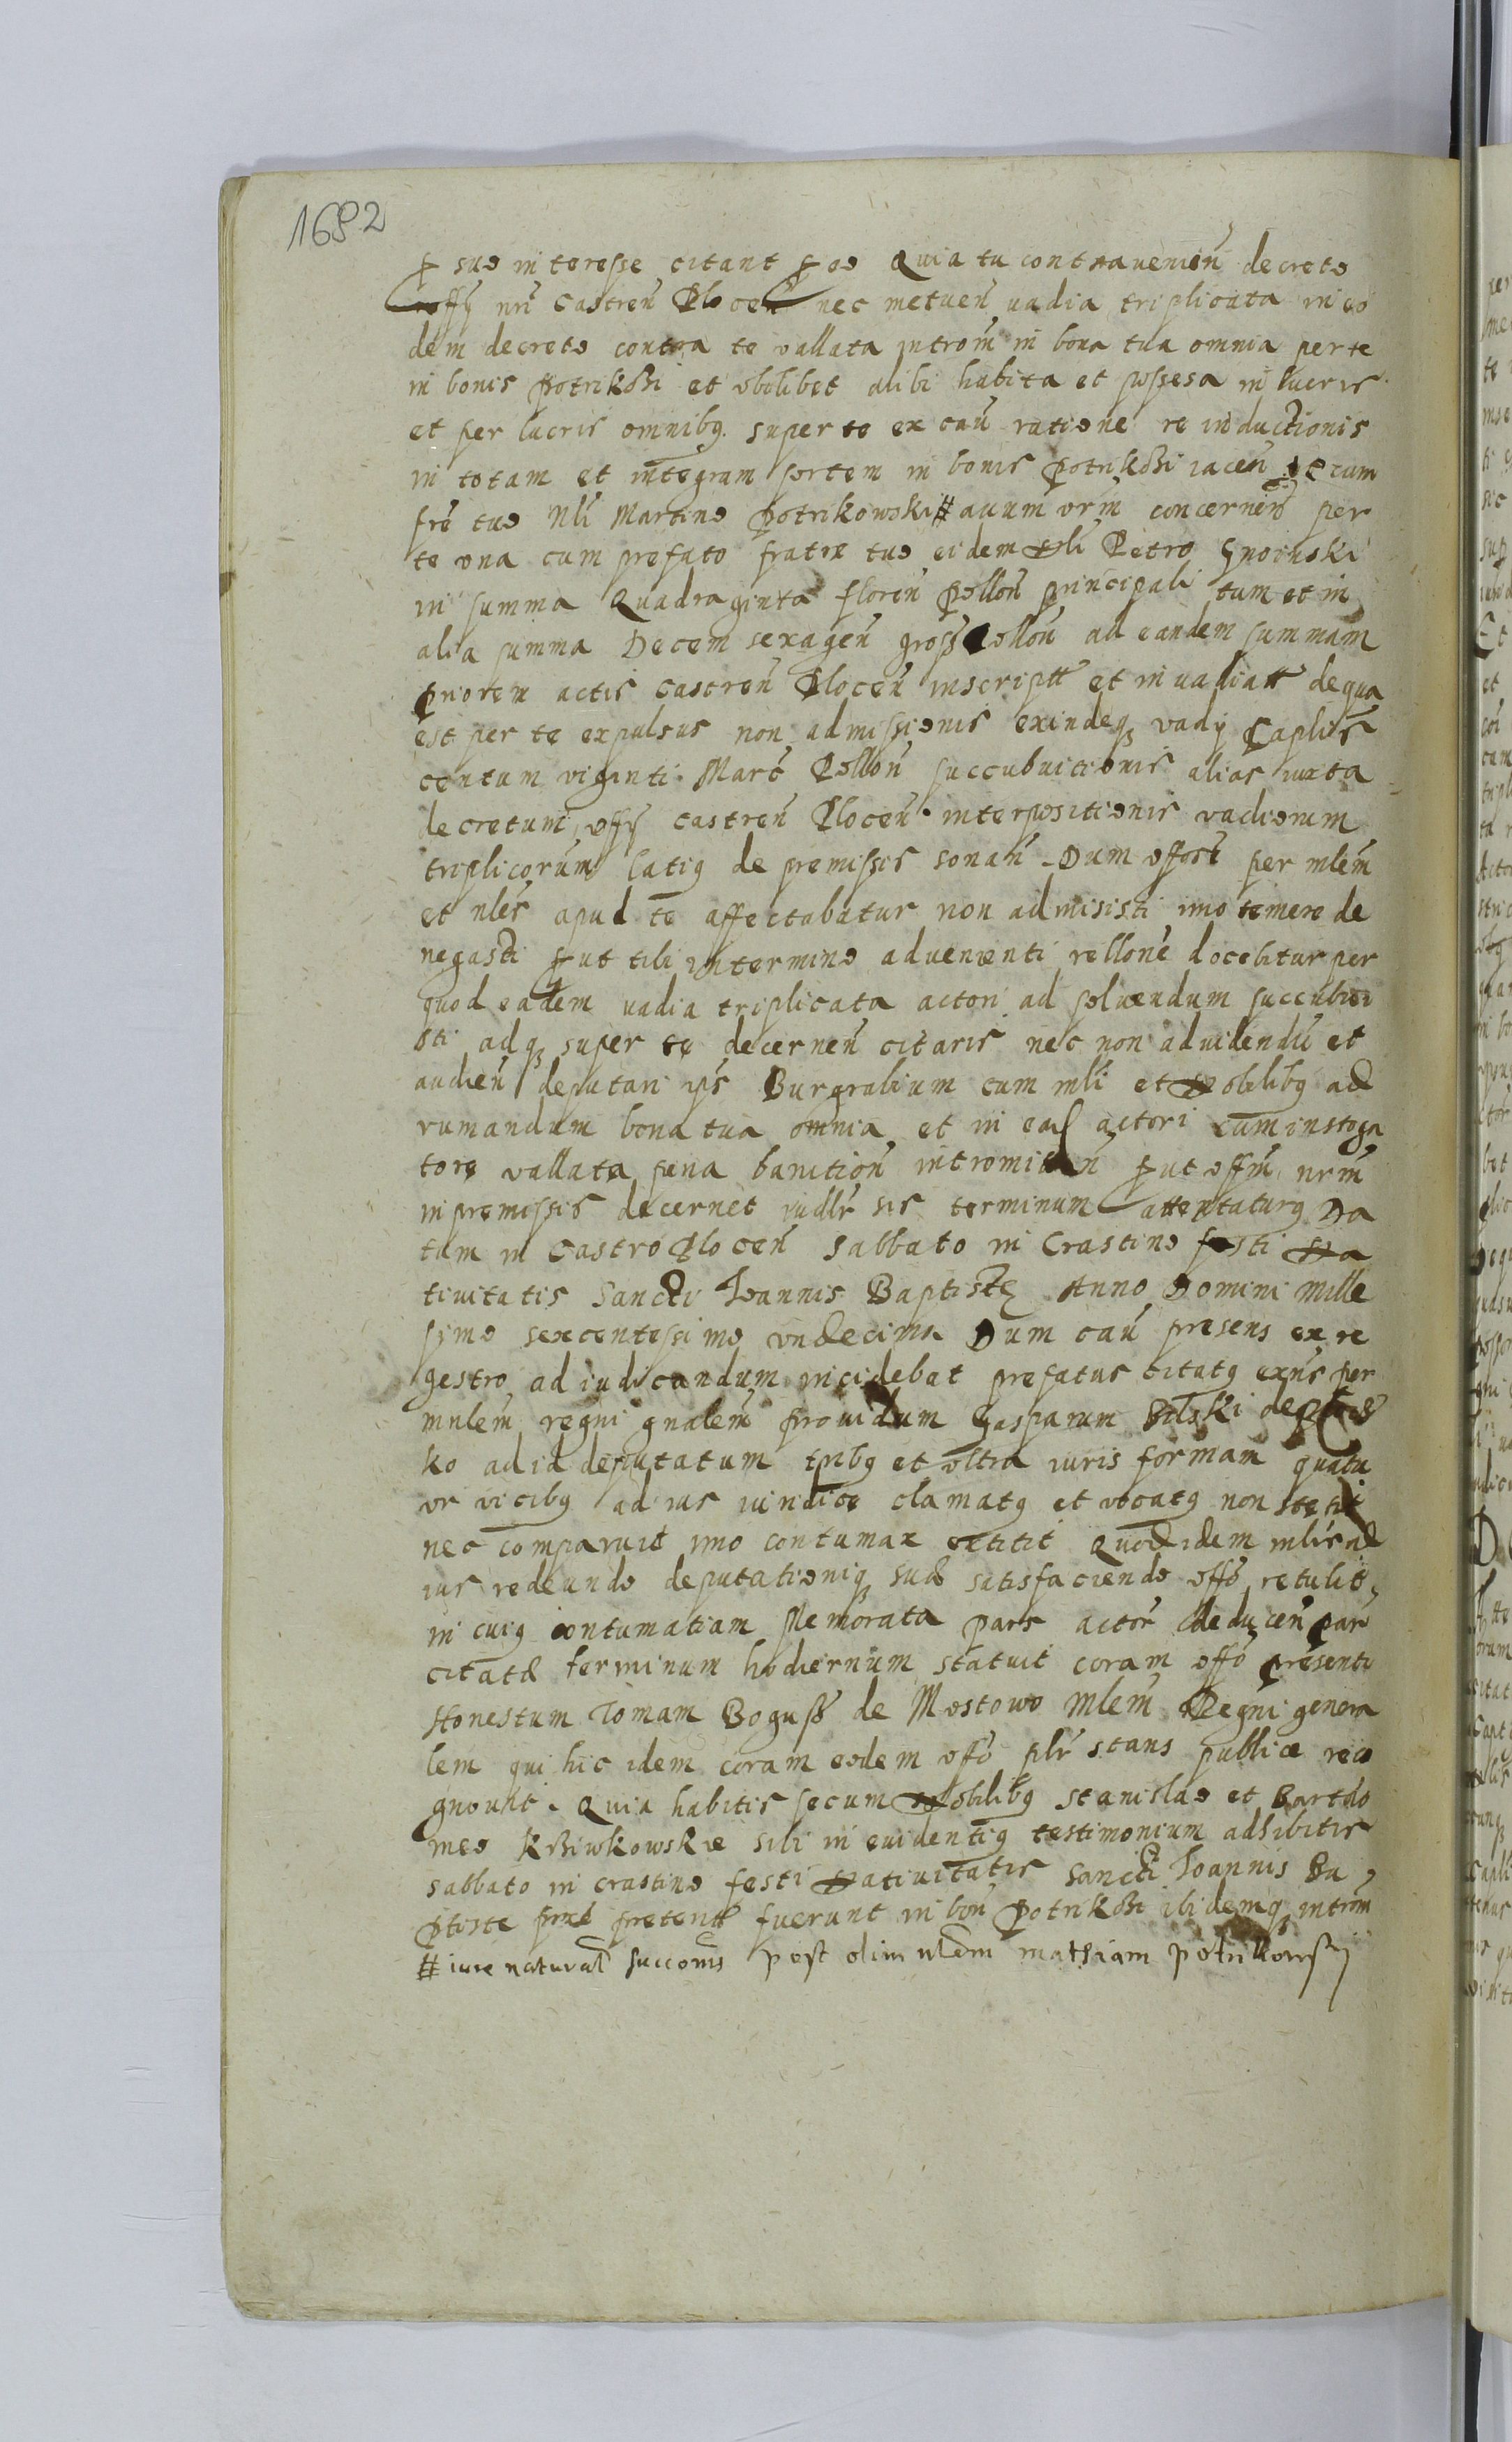 1692
ꝑ suo interesse citant ꝑ eo Quia tu contravenien̄ decreto
offỹ nrī Castren̄ Plocen̄ nec metuen̄ vadia triplicata in eo
dem decreto contra te vallata introm̄ in bona tua omnia per te
in bonis Potrikoszi et vbolibet alibi habita et possesa in lucris
et per lucris omnibq super te ex cau͂ ratione re inductionis
in totam et integram sortem in bonis Potrikoszi iacen̄ tecum
fr͂e tuo Nl͂i Martino Potrikowski # auum vrm̄ concernen̄ per
te vna cum prefato fratre tuo eidem Nl͂i Petro Gnoinski
in summa Quadraginta floren̄ Pollon̄ principali tum et in
alia summa Decem sexagen̄ gross Pollon̄ ad eandem summam
Priorem actis Castren̄ Plocen̄ inscriptt et invadiatt de qua
est per te expulsus non admissionis exindeqꝫ vadỹ Caplis͂
centum viginti Marc͂ Pollon̄ succubuitionis alias iuxta
decretum offỹ castren̄ Plocen̄ interpositionis vadiorum
triplicorum latiq de premissis sonan̄ Dum effect͂ per mlem̄
et nles͂ apud te affectabatur non admisisti imo temere de
negasti ꝓut tibi in termino advenienti rellone͂ docebitur per
quod eadem vadia triplicata actori ad soluendum succubui
sti adqꝫ super te decernen̄ citaris nec non ad videndu͂ et
audien̄ deputari ip͂s Burgrabium cum ml͂i et Nobilibq ad
rumandum bona tua omnia et in ead actori cum instiga
tore vallata pena banition̄ intromitten̄ ꝓut offm̄ nrm̄
in premissis decernet iudlr͂ sis terminum attentaturq Da
tum in Castro Plocen̄ Sabbato in Crastino festi Na
tivitatis Sancti Ioannis Baptistę Anno Domini Mille
simo sexcentessimo vndecimo Dum cau͂ presens ex re
gestro ad iudicandum incidebat prefatus citatq exns͂ per
mnlem̄ regni gnalem̄ providum Gasparum Bilski de
ko ad id deputatum tribq et vltra iuris formam quatu
or vicibq ad ius iuridice clamatq et vocatq non stetit
nec comparuit imo contumax extitit Quod idem mlis͂ ad
ius redeundo deputationiqꝫ suae satisfaciendo offō retulit
in cuiq contumatiam Memorata pars actor͂ deducen̄ par͂
citatae terminum hodiernum statuit coram offō presenti
Honestum Tomam Bogusz de Mostowo Mlem̄ Regni genera
lem qui hic idem coram eodem offō plr͂ stans publice reco
gnovit. Quia habitis secum Nobilibq Stanislao et Bartolo
meo Krziwkowskie sibi in evidentiq testimonium adhibitis
sabbato in crastino festi Nativitatis Sancti Ioannis Ba
ptiste preteritt fuerunt in bon̄ Potrikoszi ibidemqꝫ introm̄
# iure natural succonis post olim nlem̄ mathiam potrikowskj